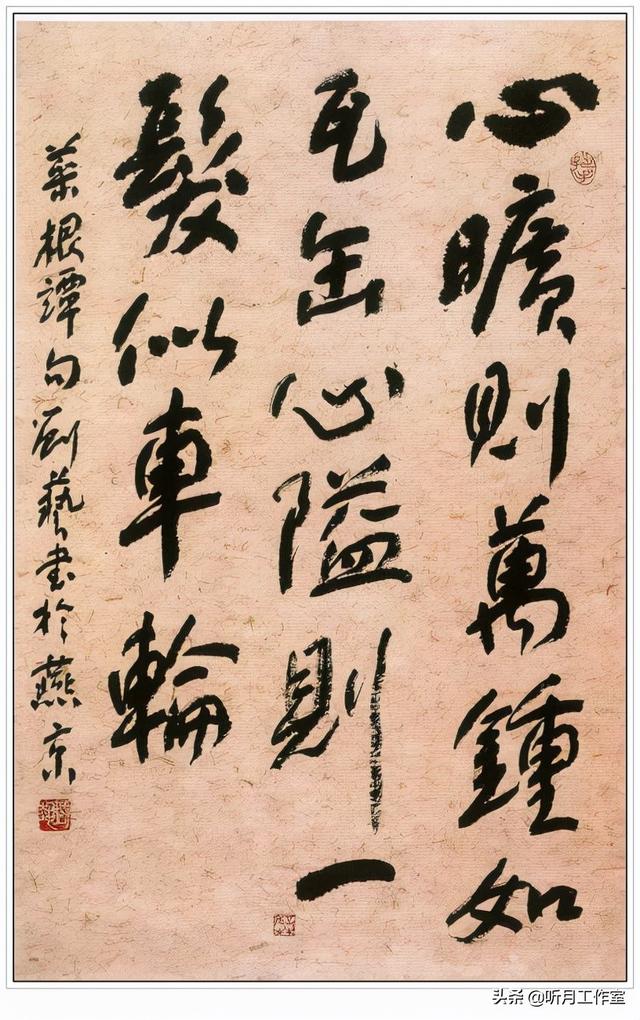 心曠則萬鍾如
瓦缶心隘則一
髮似車輪
菜根譚句劉藝書於燕京
头条 @听月工作室